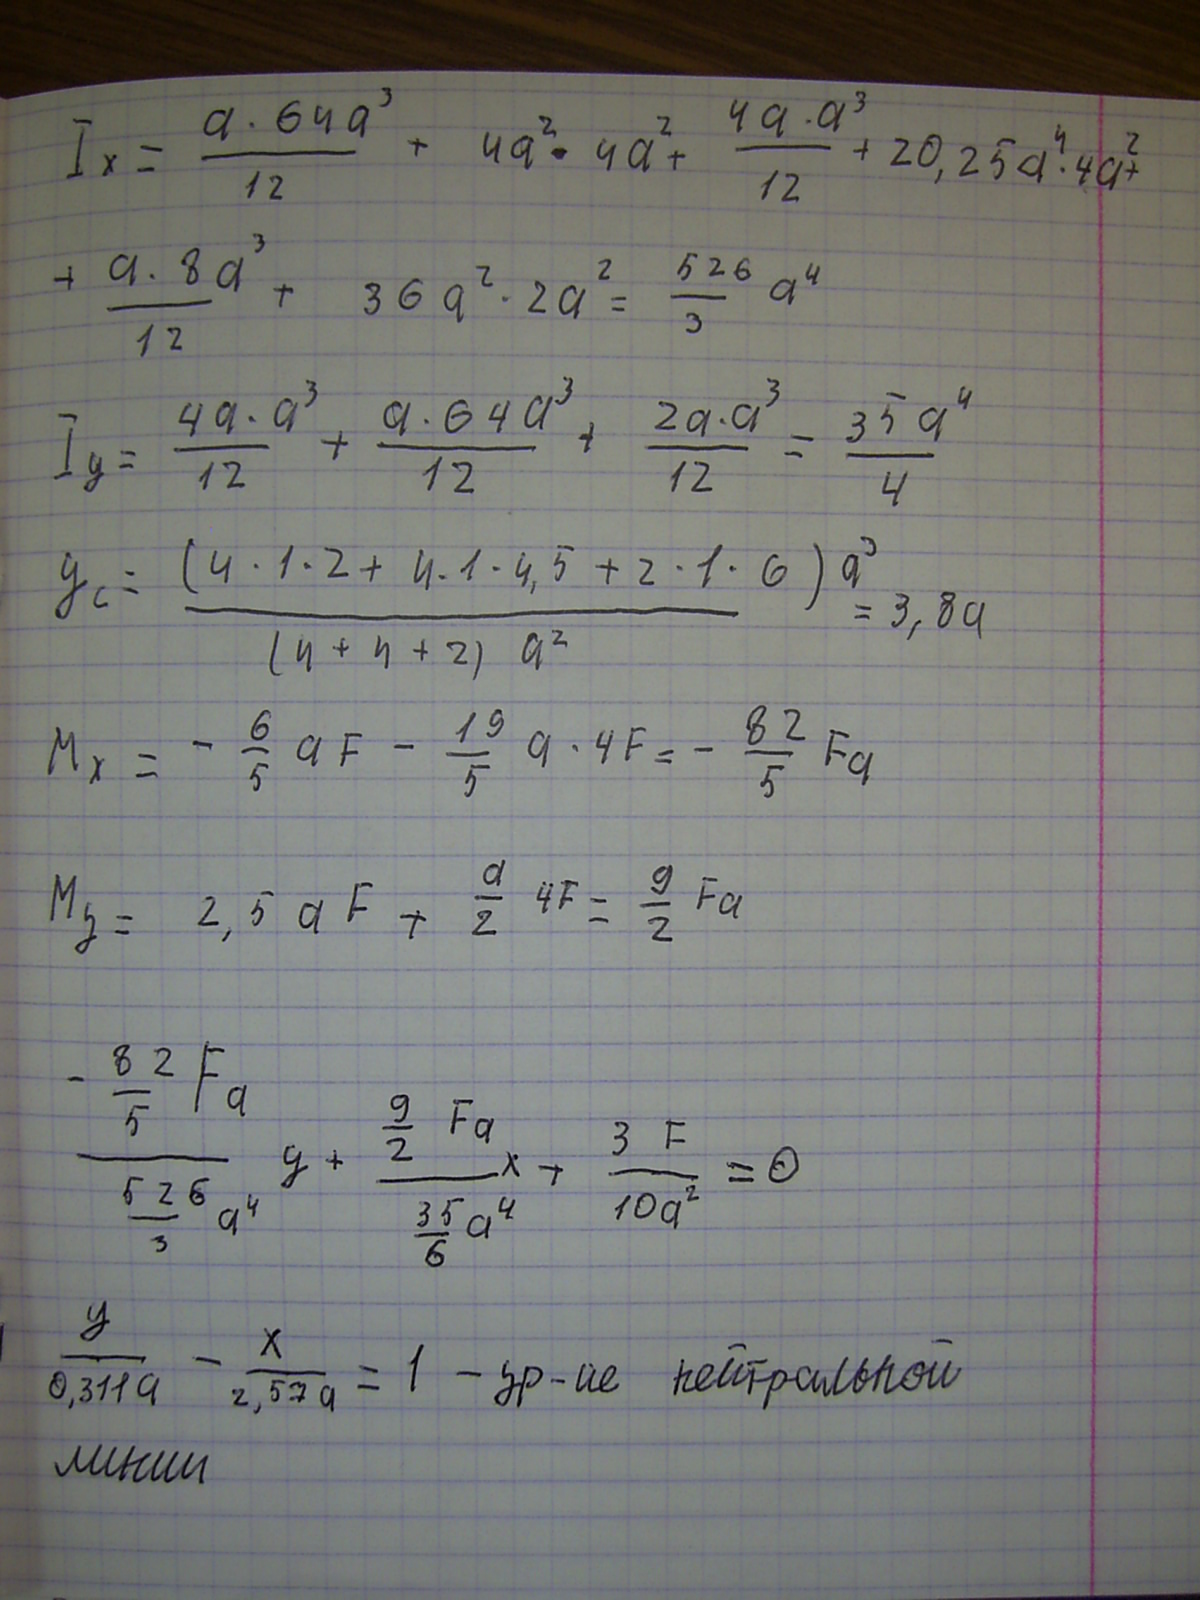 I_x = (a · 64a³)/12 + 4a² · 4a² + (4a · a³)/12 + 20,25a⁴ · 4a² +
+ (a · 8a³)/12 + 36a² · 2a² = 526/3 a⁴
I_y = (4a · a³)/12 + (a · 64a³)/12 + (2a · a³)/12 = 35a⁴/4
y_c = ((4 · 1 · 2 + 4 · 1 · 4,5 + 2 · 1 · 6) a³)/((4 + 4 + 2) a²) = 3,8a
M_x = - 6/5 aF - 19/5 a · 4F = - 82/5 Fa
M_y = 2,5 aF + a/2 4F = 9/2 Fa
(- 82/5 Fa)/(526/3 a⁴) y + (9/2 Fa)/(35/6 a⁴) x + 3F/10a² = 0
y/0,311a - x/2,57a = 1 - ур-ие нейтральной
линии